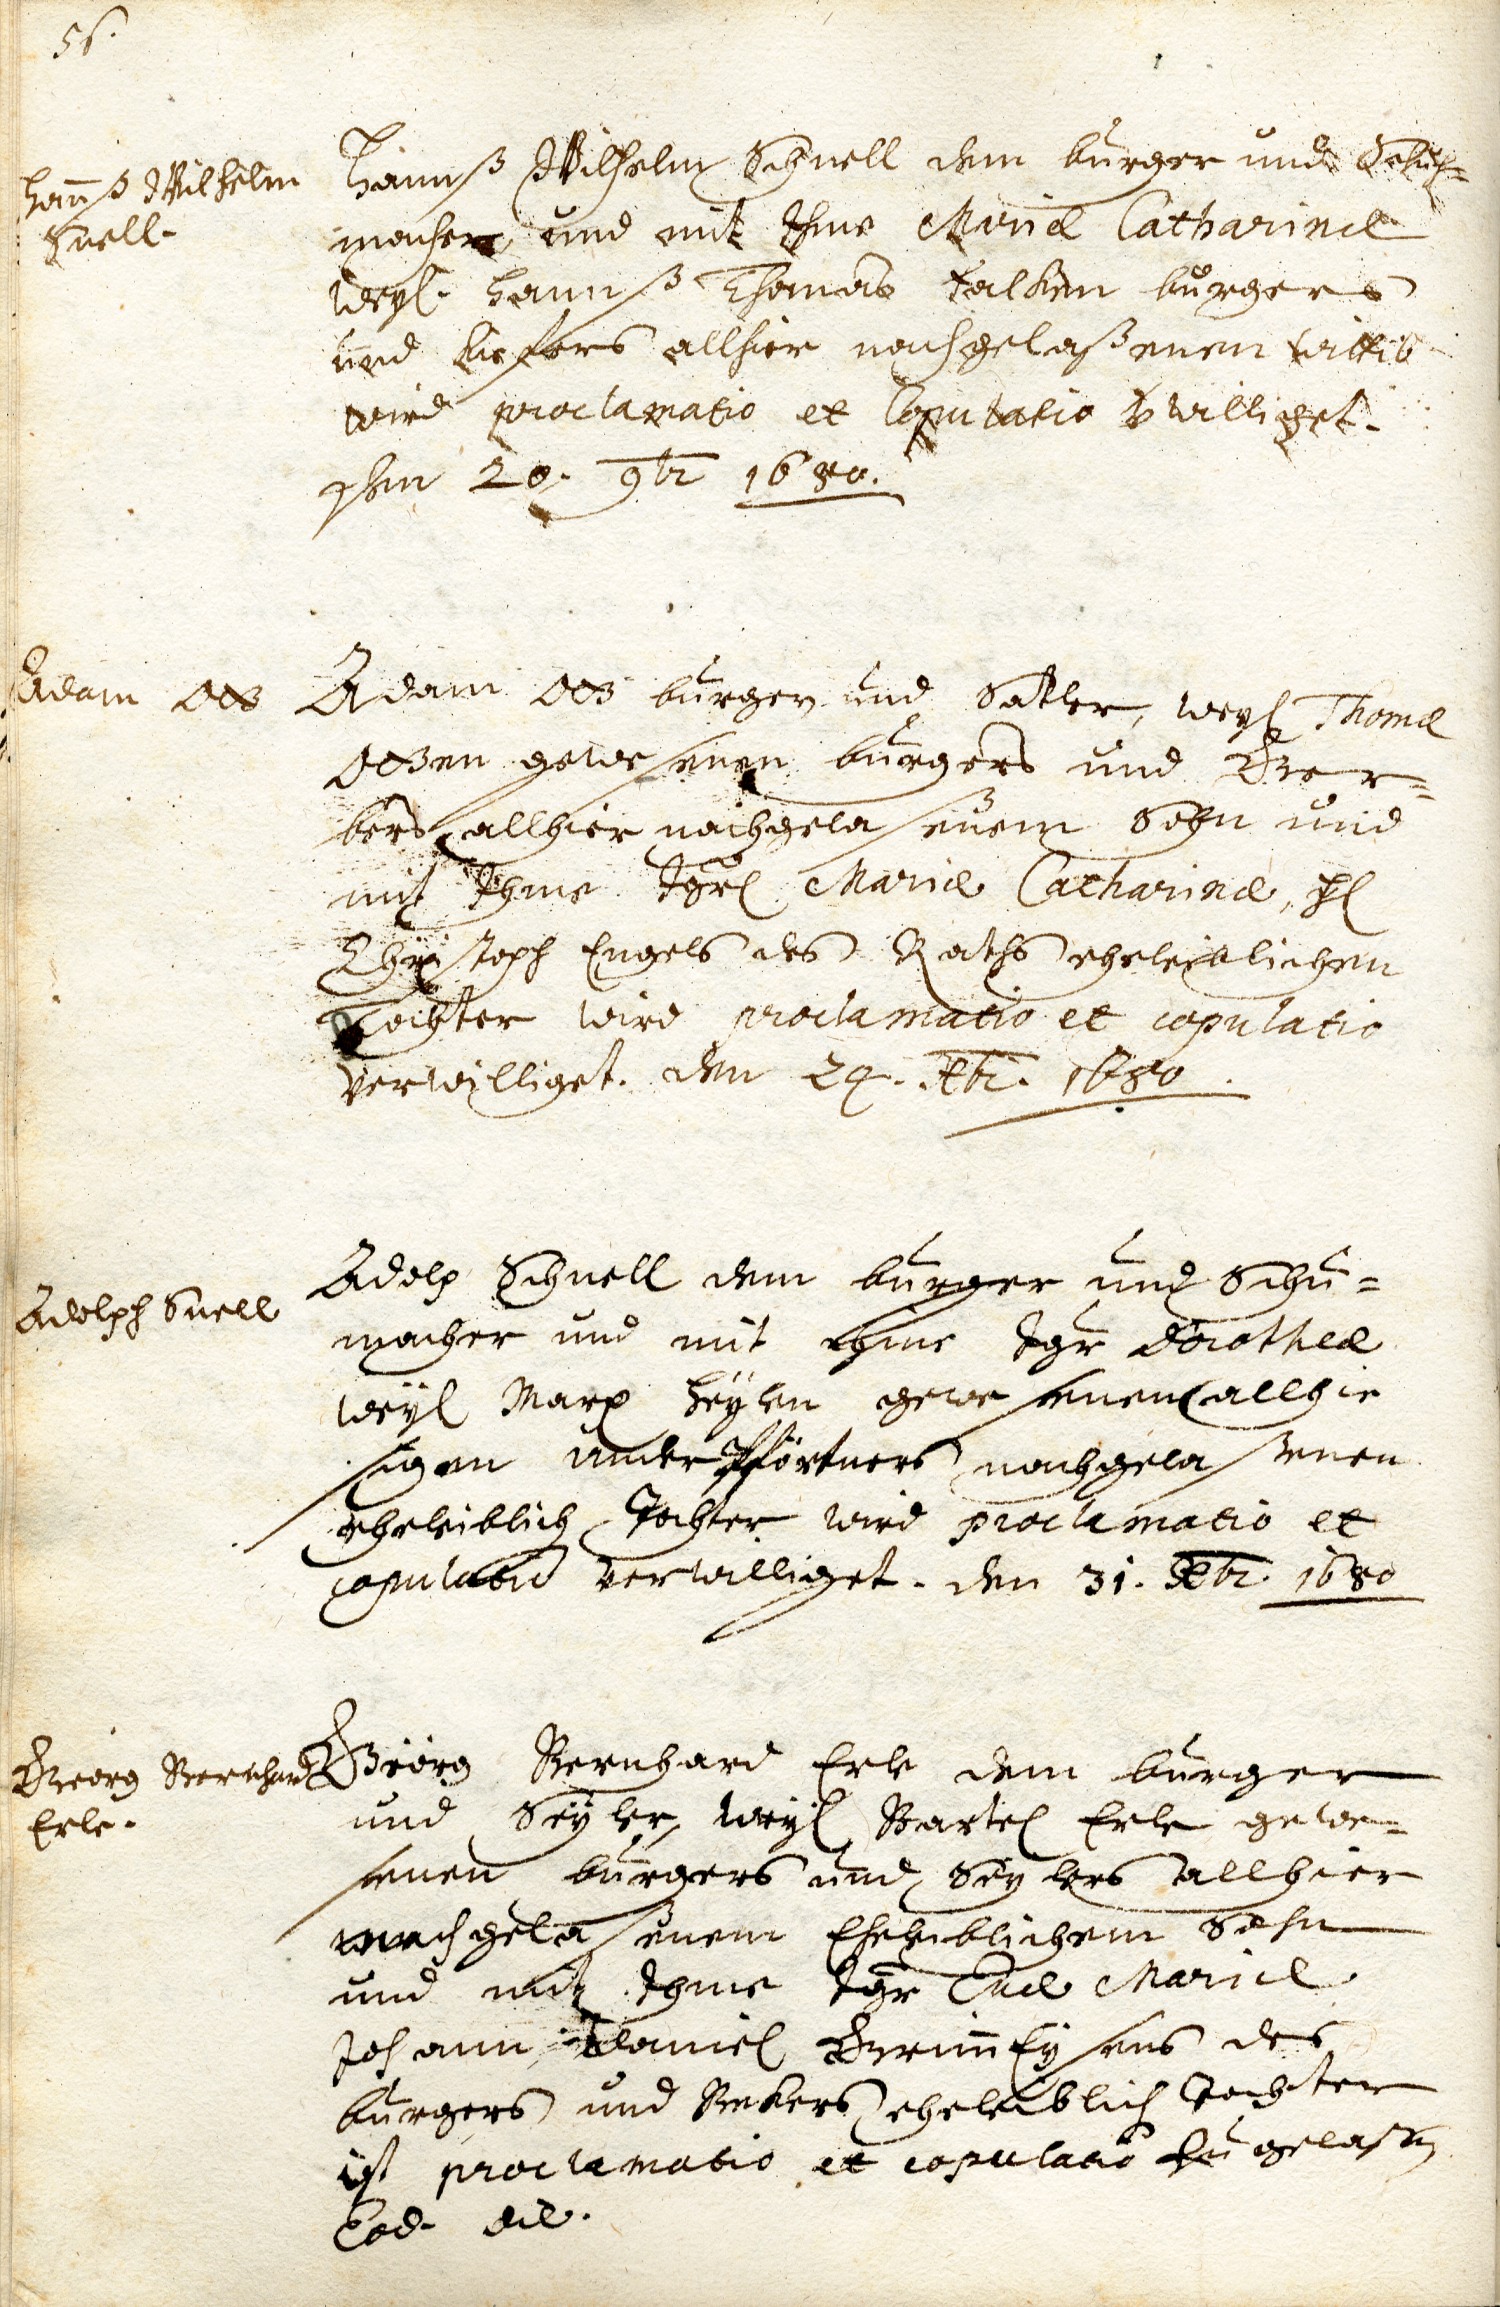 56.
Hanß Wilhelm
Snell.
Hannß Wilhelm Schnell dem burger und Schuh=
macher, und mit Ihme Mariæ Catharinæ
Weyl. Hannß Thomas Falcken burgers
und Kiefers allhier nachgelaßenen wittib
wird proclamatio et Copulatio bewilliget.
den 20. 9br 1680.
Adam Ott
Adam Ott burger und Satler, weyl Thomæ
Otten gewesenen burgers und Ger=
bers allhier nachgelaßenem Sohn und
mit Ihme Jgfr Mariæ Catharinæ, H
Christoph Engels des Raths eheleiblichen
Tochter wird proclamatio et copulatio
verwilliget. den 24. Xbr. 1680.
Adolph Snell
Adolp Schnell dem burger und Schu=
macher und mit Ihme Jgfr Dorotheæ
weyl Marx Heylen gewesenen allhie
sigen unter Pförtners nachgelaßenen
eheleiblich Tochter wird proclamatio et
copulatio verwilliget. den 31. Xbr. 1680
Georg Bernhard
Erle.
Geörg Bernhard Erle dem burger
und Seyler, weyl Bartel Erle gewe=
senen burgers und Seylers allhier
nachgelaßenem Eheleiblichem Sohn
und mit Ihme Jgfr Evæ Mariæ
Johann Daniel des
burgers und Bekers eheleiblich Tochter
ist proclamatio et copulatio zugelaßen
Eod. die.